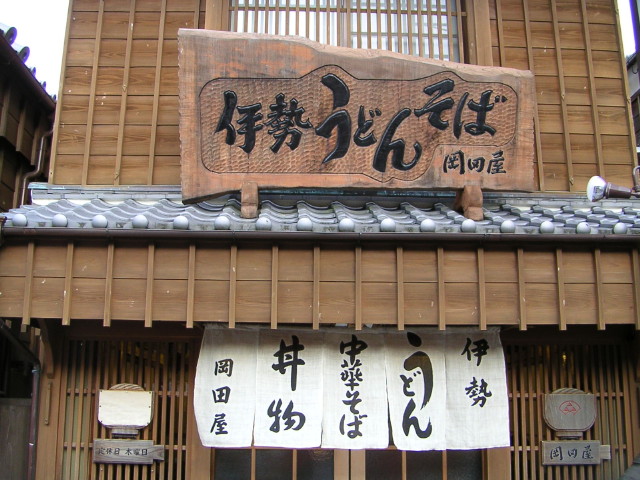 伊勢うどんそば
岡田屋
伊勢
うどん
中華そば
丼物
岡田屋
定休日 木曜日
岡田屋